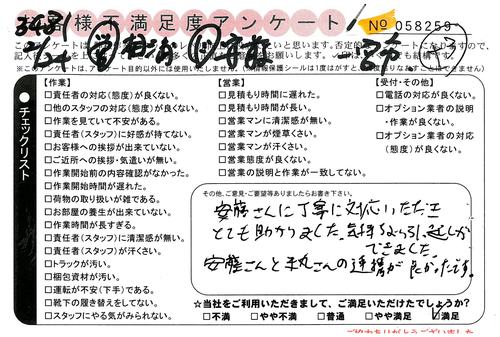 お客様不満足度アンケート
No 058259
【作業】
□責任者の対応(態度)が良くない。
□他のスタッフの対応(態度)が良くない。
□作業を見ていて不安がある。
□責任者(スタッフ)に好感が持てない。
□お客様への挨拶が出来ていない。
□ご近所への挨拶・気遣いが無い。
□作業開始前の内容確認がなかった。
□作業開始時間が遅れた。
□荷物の取り扱いが雑である。
□お部屋の養生が出来ていない。
□作業時間が長すぎる。
□責任者(スタッフ)に清潔感が無い。
□責任者(スタッフ)が汗くさい。
□トラックが汚い。
□梱包資材が汚い。
□運転が不安(下手)である。
□靴下の履き替えをしてない。
□スタッフにやる気がみられない。
【営業】
□見積もり時間に遅れた。
□見積もり時間が長い。
□営業マンに清潔感が無い。
□営業マンが煙草くさい。
□営業マンが汗くさい。
□営業態度が良くない。
□営業の説明と作業が一致してない。
【受付・その他】
□電話の対応が良くない。
□オプション業者の説明
・作業が良くない。
□オプション業者の対応
(態度)が良くない。
●チェックリスト
その他、ご意見・ご要望等ありましたらお書き下さい。
安藤さんに丁寧に対応いただき
とても助かりました。気持ちよく引越しが
できました。
安藤さんと末丸さんの連携が良かったです。
☆当社をご利用いただきまして、ご満足いただけたでしょうか?
□不満 □やや不満 □普通 □やや満足 □満足
ご協力ありがとうございました